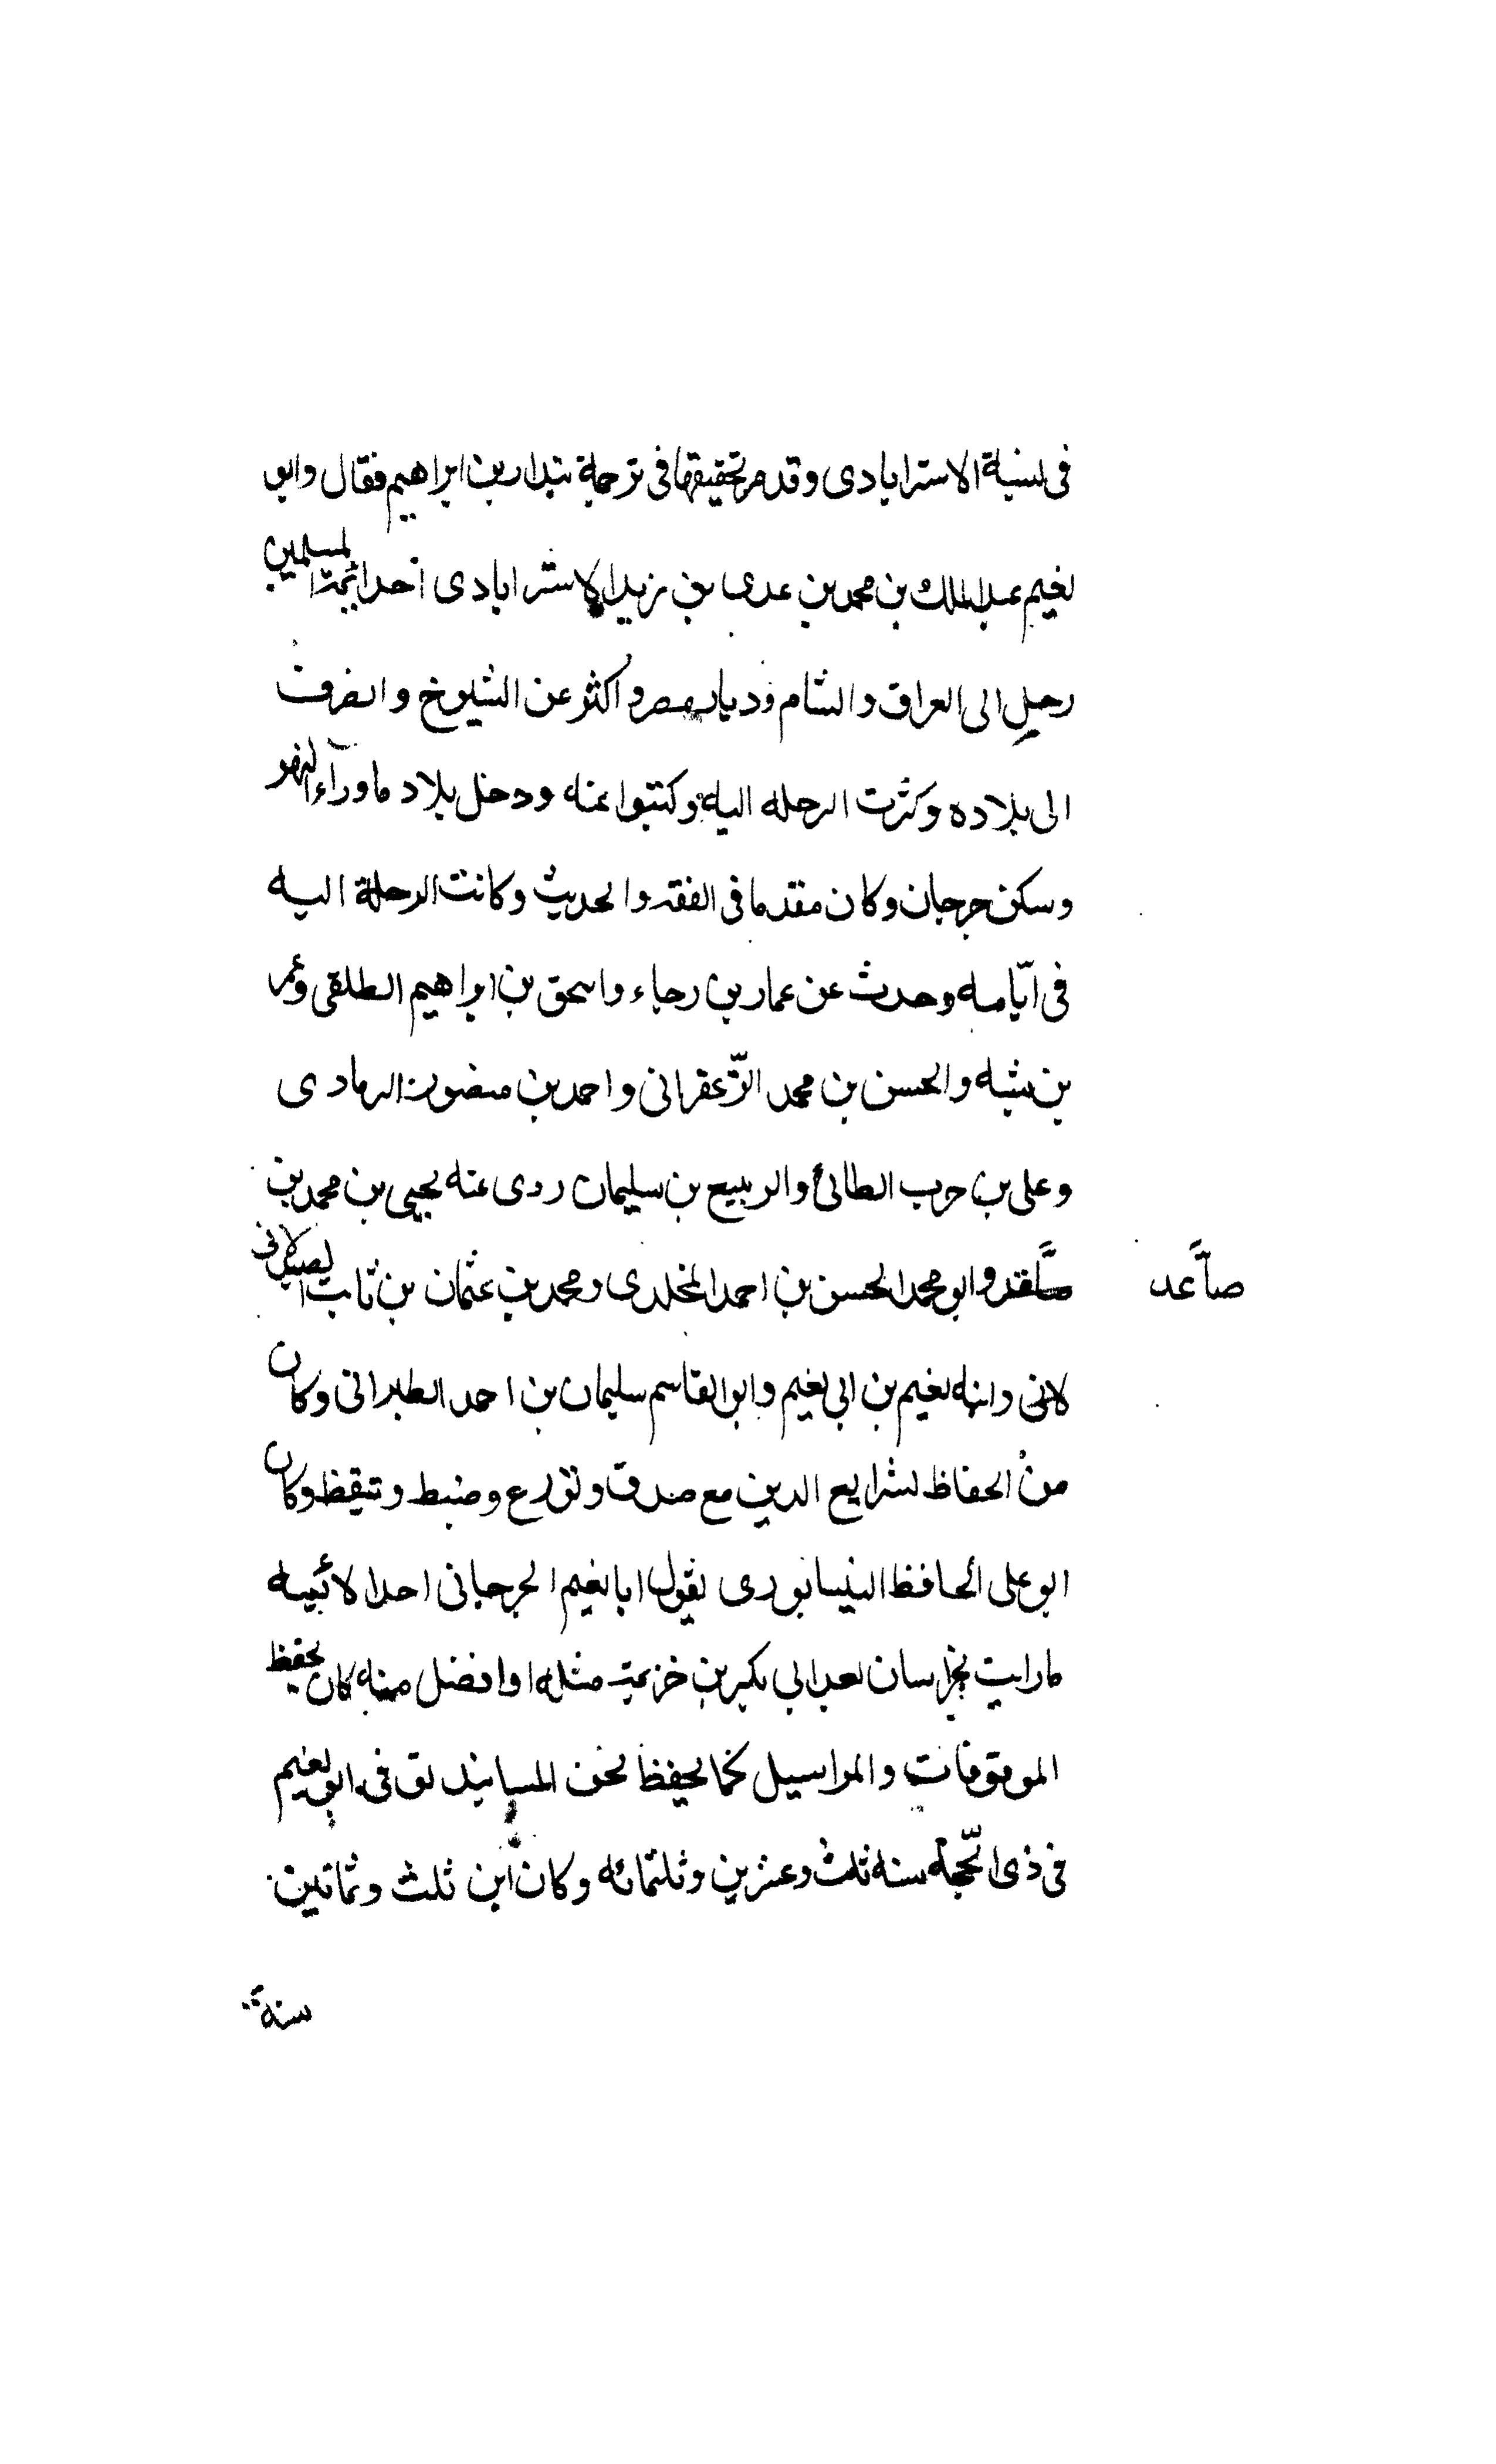 فى نسبة الاسترابادى وقد مر تحقيقها فى ترجمة بندار بن ابراهيم فقال وابو
نعيم عبد الملك بن محمد بن عدى بن زيد الاسترابادى احد ائمة المسلمين
رحل الى العراق والشام وديار مصر واكثر عن الشيوخ وانصرف
الى بلاده وكثرت الرحله اليه وكتبوا عنه ودخل بلاد ماورآء النهر
وسكن جرجان وكان مقدما فى الفقه والحديث وكانت الرحلة اليه
فى ايّامه وحدث عن عمار بن رجاء واسحق بن ابراهيم الطلقى وعمر
بن شبه والحسن بن محمد الزّعفرانى واحمد بن منصور الرمادى
وعلى بن حرب الطائى والربيع بن سليمان روى عنه يحيى بن محمد بن
صاعد
وابو محمد الحسن بن احمد المخلدى ومحمد بن عثمان بن ثابت الصيدلانى
لانى وابنه نعيم بن ابى نعيم وابو القاسم سليمان بن احمد الطبرانى وكان
من الحفاظ لشرايع الدين مع صدق وتورع وضبط وتيقظ وكان
ابو على الحافظ النيسابورى يقول ابا نعيم الجرجانى احد الائمه
مارايت بخراسان بعد ابى بكر بن خزيمة مثله او افضل منه كان يحفظ
الموقوفات والمراسيل كما يحفظ نحن المسانيد توفى ابو نعيم
فى ذى الحّجة سنه ثلث وعشرين وثلثمائه وكان ابن ثلث وثمانين
سنه